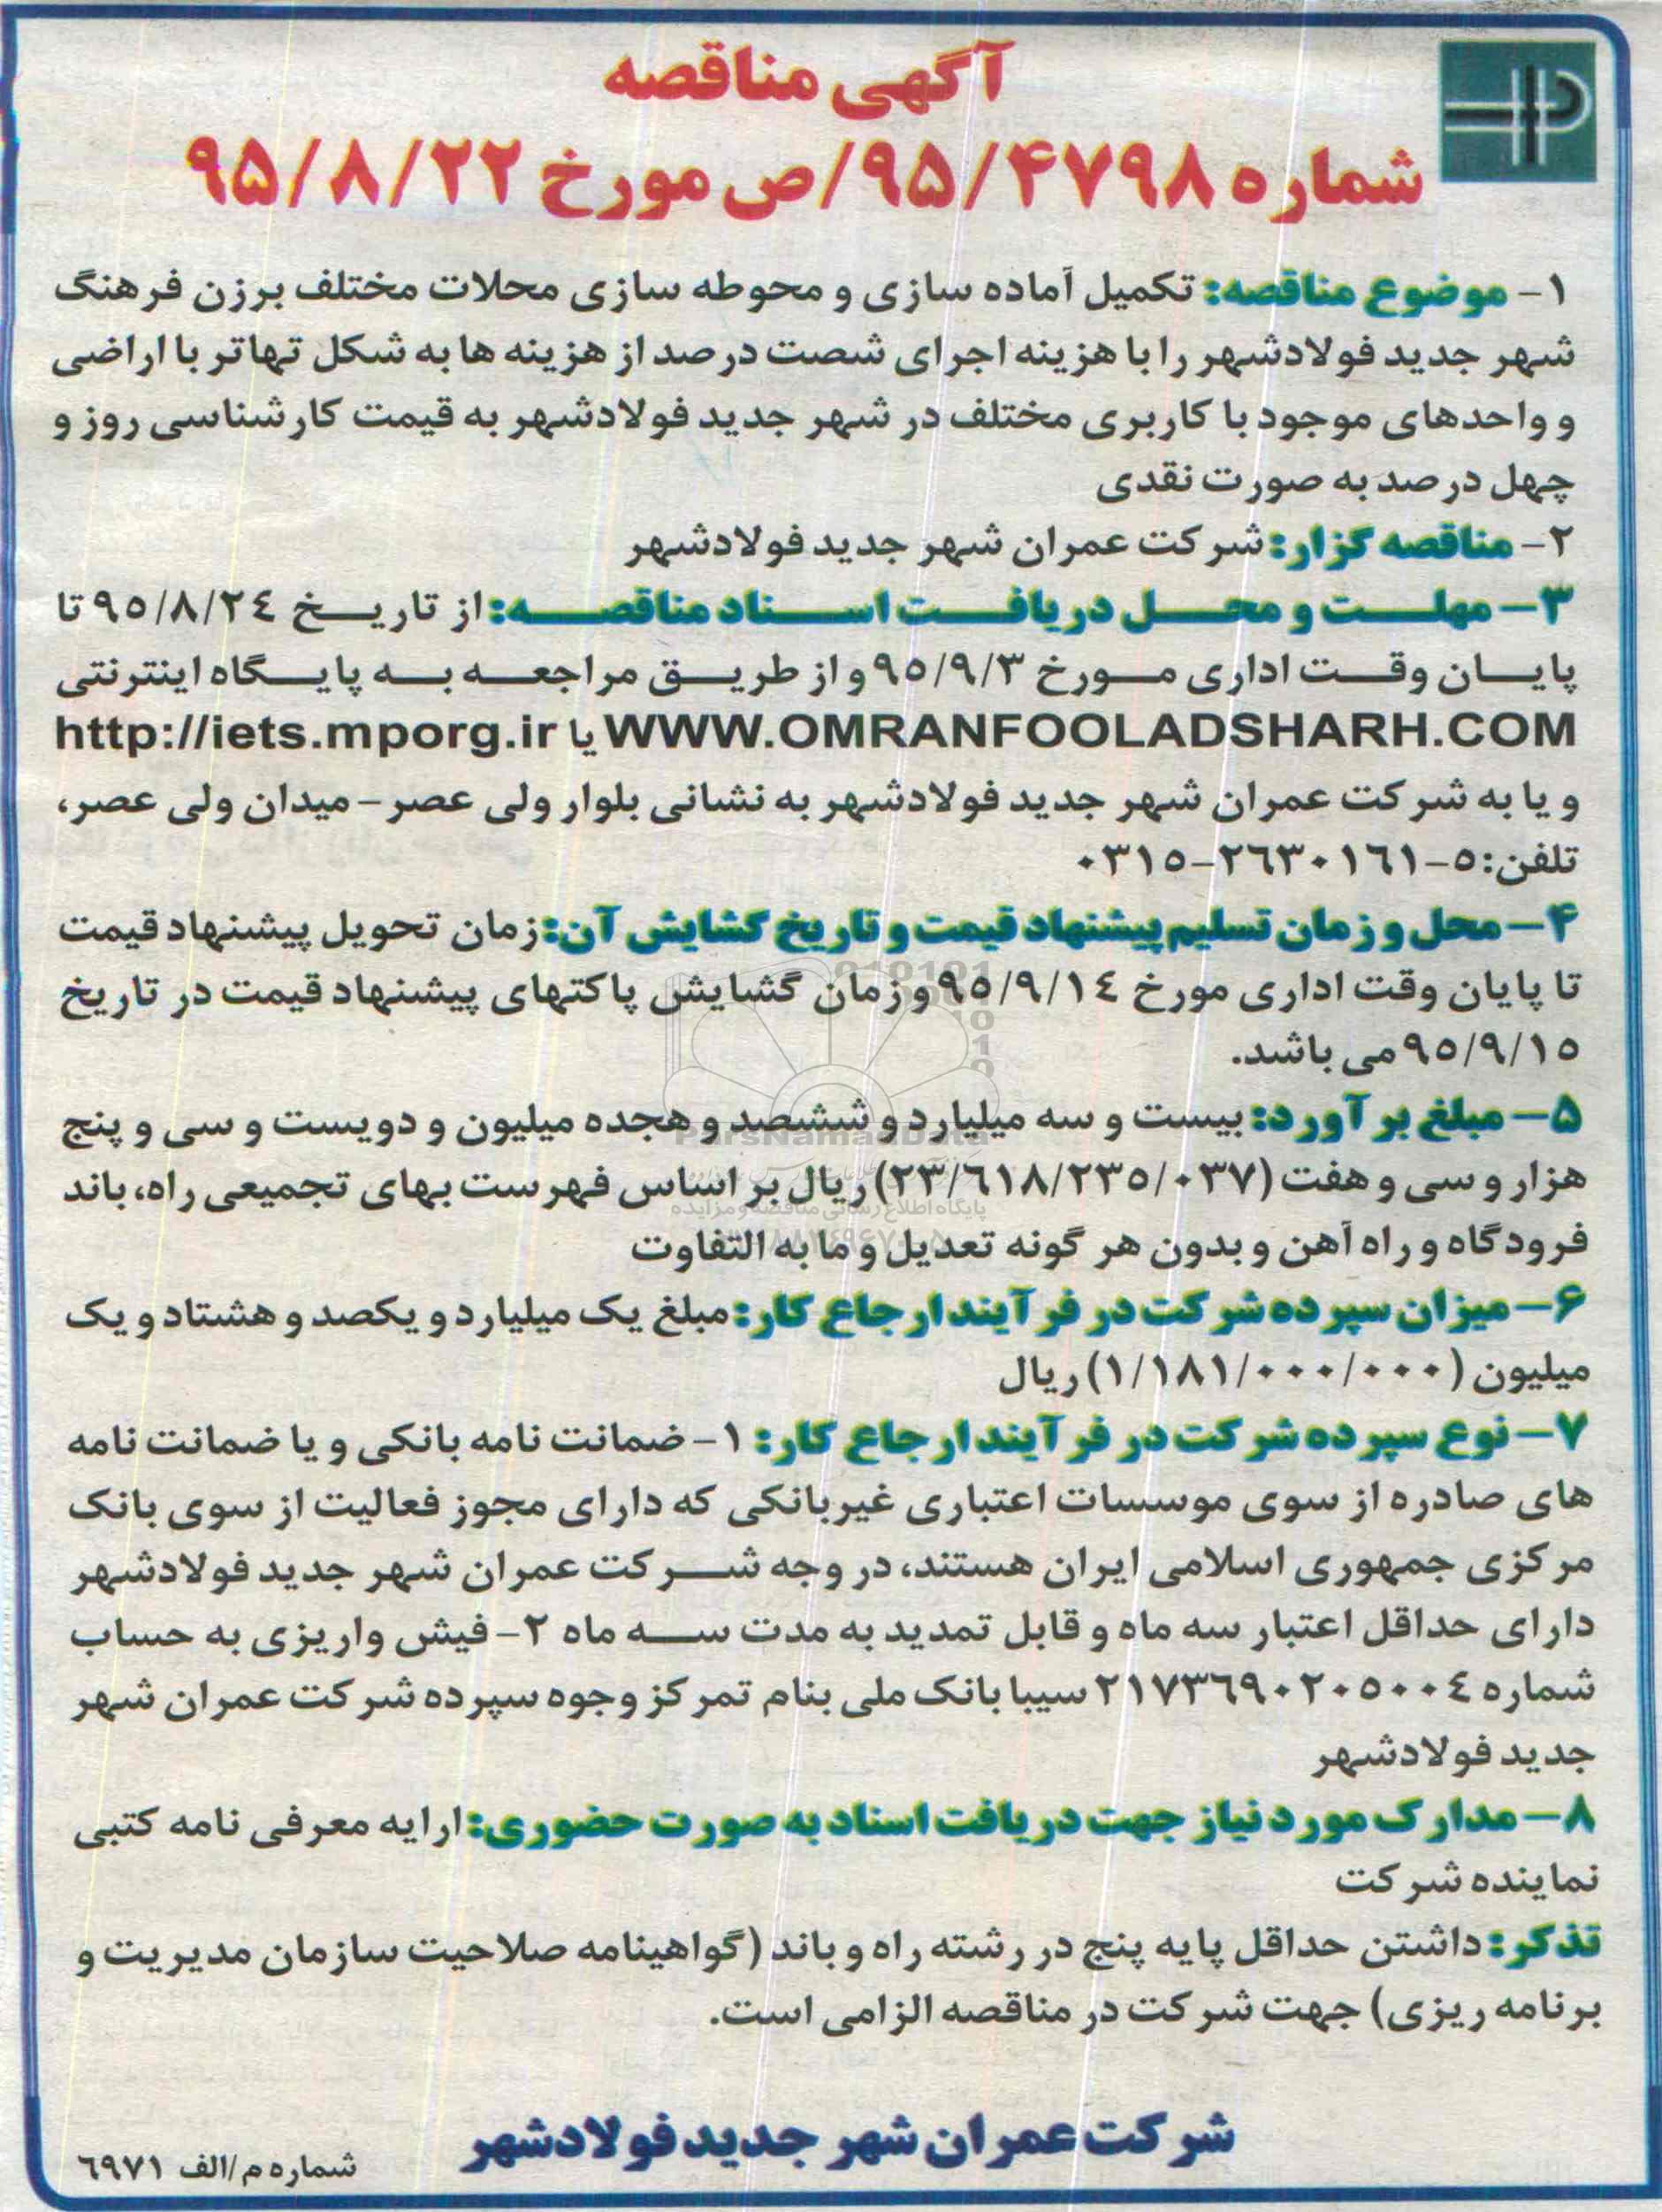 آگهی مناقصه
شماره ۹۵/۴۷۹۸/ص مورخ ۹۵/۸/۲۲
۱- موضوع مناقصه: تکمیل آماده سازی و محوطه سازی محلات مختلف برزن فرهنگ
شهر جدید فولادشهر را با هزینه اجرای شصت درصد از هزینه ها به شکل تهاتر با اراضی
و واحدهای موجود با کاربری مختلف در شهر جدید فولادشهر به قیمت کارشناسی روز و
چهل درصد به صورت نقدی
۲- مناقصه گزار: شرکت عمران شهر جدید فولادشهر
۳- مهلت و محل دریافت اسناد مناقصه: از تاریخ ۹۵/۸/۲۴ تا
پایان وقت اداری مورخ ۹۵/۹/۳ و از طریق مراجعه به پایگاه اینترنتی
WWW.OMRANFOOLADSHARH.COM یا http://iets.mporg.ir
و یا به شرکت عمران شهر جدید فولادشهر به نشانی بلوار ولی عصر - میدان ولی عصر،
تلفن: ۵-۲۶۳۰۱۶۱-۰۳۱۵
۴- محل و زمان تسلیم پیشنهاد قیمت و تاریخ گشایش آن: زمان تحویل پیشنهاد قیمت
تا پایان وقت اداری مورخ ۹۵/۹/۱۴ و زمان گشایش پاکتهای پیشنهاد قیمت در تاریخ
۹۵/۹/۱۵ می باشد.
۵- مبلغ برآورد: بیست و سه میلیارد و ششصد و هجده میلیون و دویست و سی و پنج
هزار و سی و هفت (۲۳/۶۱۸/۲۳۵/۰۳۷) ریال بر اساس فهرست بهای تجمیعی راه، باند
فرودگاه و راه آهن و بدون هر گونه تعدیل و ما به التفاوت
۶- میزان سپرده شرکت در فرآیند ارجاع کار: مبلغ یک میلیارد و یکصد و هشتاد و یک
میلیون (۱/۱۸۱/۰۰۰/۰۰۰) ریال
۷- نوع سپرده شرکت در فرآیند ارجاع کار: ۱- ضمانت نامه بانکی و یا ضمانت نامه
های صادره از سوی موسسات اعتباری غیربانکی که دارای مجوز فعالیت از سوی بانک
مرکزی جمهوری اسلامی ایران هستند، در وجه شرکت عمران شهر جدید فولادشهر
دارای حداقل اعتبار سه ماه و قابل تمدید به مدت سه ماه ۲- فیش واریزی به حساب
شماره ۲۱۷۳۶۹۰۲۰۵۰۰۴ سیبا بانک ملی بنام تمرکز وجوه سپرده شرکت عمران شهر
جدید فولادشهر
۸- مدارک مورد نیاز جهت دریافت اسناد به صورت حضوری: ارایه معرفی نامه کتبی
نماینده شرکت
تذکر: داشتن حداقل پایه پنج در رشته راه و باند (گواهینامه صلاحیت سازمان مدیریت و
برنامه ریزی) جهت شرکت در مناقصه الزامی است.
شرکت عمران شهر جدید فولادشهر
شماره م/الف ۶۹۷۱
ParsNamadData
پایگاه اطلاع رسانی مناقصه و مزایده